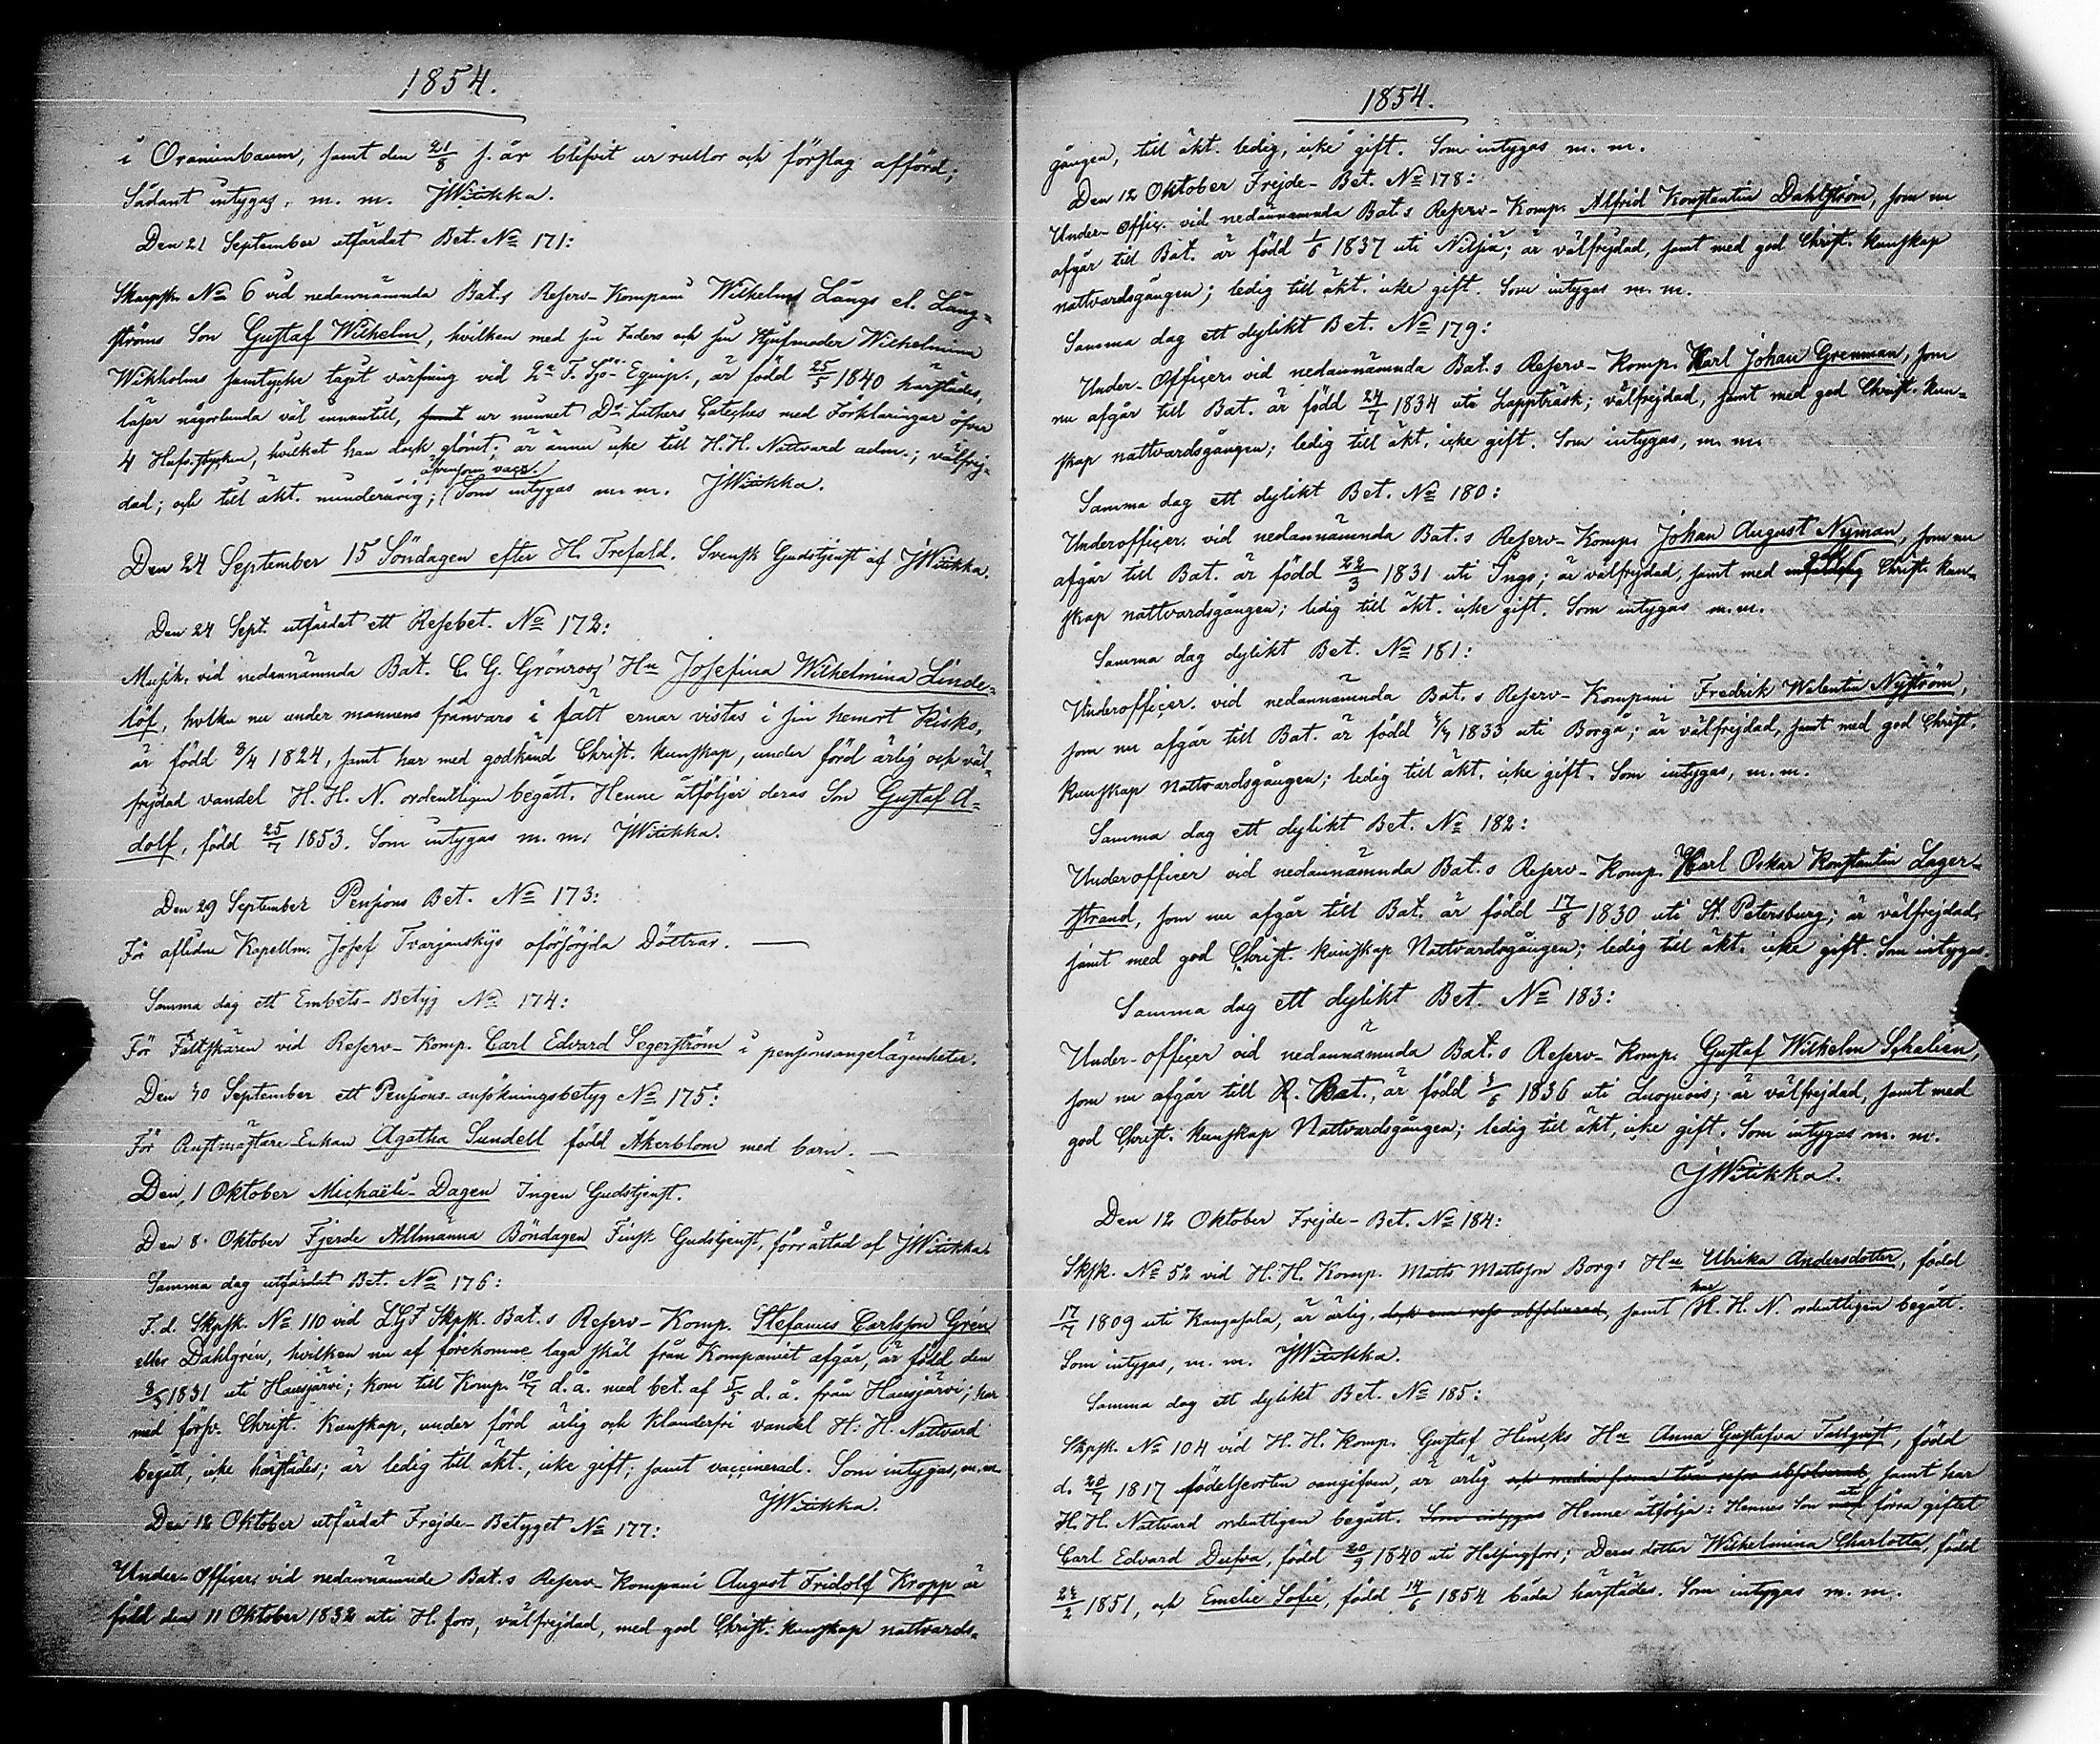 1854.
i Oranienbaum, samt den 21/8 s. år blifvit ur rullor och förslag afförd;
Sådant intygas, m. m. JWitikka.
Den 21 September utfärdat Bet. No 171:
Skarpsk. No 6 vid nedannämnda Bat.s Reserv-Kompani Wilhelms Längs el. Läng-
ströms Son Gustaf Wilhelm, hvilken med sin Faders och sin Stjufmoder Wilhelmina
Wikholms samtycke tagit värfning vid 2a F. Sjö-Equip., är född 25/5 1840 härstädes,
läser någorlunda väl innantill, samt ur minnet Dr Luthers Cateches med Förklaringar öfver
4 Hufv.stycken, hvilket han dock glömt; är ännu icke till H. H. Nattvard adm.; välfrej-
dad; och till äkt. minderårig; äfvensom vacc. Som intygas m. m. JWitikka.
Den 24 September 15 Söndagen efter H. Trefald. Svensk Gudstjenst af JWitikka.
Den 24 Sept. utfärdat ett Resebet. No 172:
Musik. vid nedannämnda Bat. C. G. Grönroos' Hu Josefina Wilhelmina Linde-
löf, hvilken nu under mannens frånvaro i fält ernar vistas i sin hemort Kisko,
är född 8/4 1824, samt har med godkänd Christ. kunskap, under förd ärlig och väl-
frejdad vandel H. H. N. ordentligen begått. Henne åtföljer deras Son Gustaf A-
dolf, född 25/7 1853. Som intygas m. m. JWitikka.
Den 29 September Pensions Bet. No 173:
För aflidne Kapellm. Josef Tvarjanskijs oförsörjda Döttrar. —
Samma dag ett Embets-Betyg No 174:
För Fältskären vid Reserv-Komp. Carl Edvard Segerström i pensionsangelägenheter.
Den 30 September ett Pensions-ansökningsbetyg No 175:
För Rustmästare-Enkan Agatha Sundell född Åkerblom med barn. —
Den 1 Oktober Michaëli-Dagen Ingen Gudstjenst.
Den 8. Oktober Fjerde Allmänna Böndagen Finsk Gudstjenst, förrättad af JWitikka.
Samma dag utfärdat Bet. No 176:
F. d. Skpsk. No 110 vid LGF Skpsk. Bat.s Reserv-Komp. Stefanus Carlsson Grén
eller Dahlgrén, hvilken nu af förekomne laga skäl från Kompaniet afgår, är född den
8/3 1831 uti Hausjärvi; kom till Komp. 10/7 d. å. med bet. af 5/5 d. å. från Hausjärvi; har
med försv. Christ. Kunskap, under förd ärlig och klanderfri vandel H. H. Nattvard
begått, icke härstädes; är ledig till äkt., icke gift; samt vaccinerad. Som intygas, m. m.
JWitikka.
Den 12 Oktober utfärdat Frejde-Betyget No 177:
Under-Officer. vid nedannämnde Bat.s Reserv-Kompani August Fridolf Kropp är
född den 11 Oktober 1832 uti H. fors, välfrejdad, med god Christ. kunskap nattvards-
1854.
gången, till äkt. ledig, icke gift. Som intygas m. m.
Den 12 Oktober Frejde-Bet. No 178:
Under-Offic. vid nedannämnda Bat.s Reserv-Komp. Alfrid Konstantin Dahlström, som nu
afgår till Bat. är född 1/6 1837 uti Nilsiä; är välfrejdad, samt med god Christ. kunskap
nattvardsgången; ledig till äkt. icke gift. Som intygas m. m.
Samma dag ett dylikt Bet. No 179:
Under-Officer. vid nedannämnda Bat.s Reserv-Komp. Karl Johan Grenman, som
nu afgår till Bat. är född 24/7 1834 uti Lappträsk; välfrejdad, samt med god Christ. kun-
skap nattvardsgången; ledig till äkt. icke gift. Som intygas, m. m.
Samma dag ett dylikt Bet. No 180:
Underofficer. vid nedannämnda Bat.s Reserv-Komp. Johan August Nyman, som nu
afgår till Bat. är född 22/3 1831 uti Ingo; är välfrejdad, samt med god Christ. kun-
skap nattvardsgången; ledig till äkt. icke gift. Som intygas m. m.
Samma dag dylikt Bet. No 181:
Underofficer. vid nedannämnda Bat.s Reserv-Kompani Fredrik Walentin Nyström,
som nu afgår till Bat. är född 1833 uti Borgå; är välfrejdad, samt med god Christ.
kunskap Nattvardsgången; ledig till äkt. icke gift. Som intygas, m. m.
Samma dag ett dylikt Bet. No 182:
Underofficer vid nedannämnda Bat.s Reserv-Komp. Karl Oskar Konstantin Lager-
strand, som nu afgår till Bat. är född 17/8 1830 uti St. Petersburg; är välfrejdad,
samt med god Christ. kunskap Nattvardsgången; ledig till äkt. icke gift. Som intygas.
Samma dag ett dylikt Bet. No 183:
Under-officer vid nedannämnda Bat.s Reserv-Komp. Gustaf Wilhelm Schalien,
som nu afgår till R. Bat., är född 1/6 1836 uti Luopiois; är välfrejdad, samt med
god Christ. kunskap Nattvardsgången; ledig till äkt, icke gift. Som intygas m. m.
JWitikka.
Den 12 Oktober Frejde-Bet. No 184:
Skpsk. No 52 vid H. H. Komp. Matts Mattsson Borgs Hu Ulrika Andersdotter, född
17/7 1809 uti Kangasala, är ärlig, dock en resa absolverad, samt har H. H. N. ordentligen begått.
Som intygas, m. m. JWitikka.
Samma dag ett dylikt Bet. No 185:
Skpsk. No 104 vid H. H. Komp. Gustaf Hincks Hu Anna Gustafva Tallqvist, född
d. 20/7 1817 födelseorten oangifven, är ärlig samt har
H. H. Nattvard ordentligen begått. Som intygas Henne åtfölja: Hennes Son uti förra giftet
Carl Edvard Dufva, född 20/9 1840 uti Helsingfors; Deras dotter Wilhelmina Charlotta, född
1851, och Emelie Sofie, född 14/6 1854 båda härstädes. Som intygas m. m.